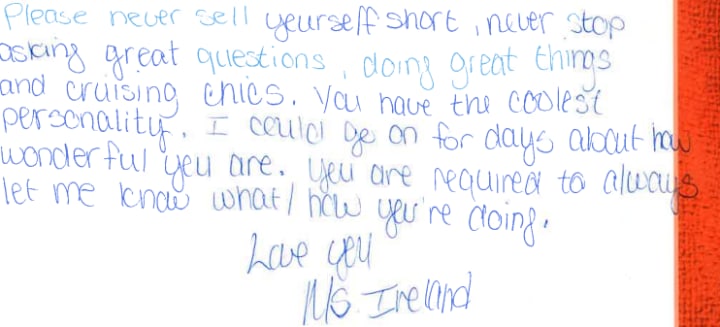 Please never sell yourself short, never stop
asking great questions, doing great things
and cruising chics. You have the coolest
personality. I could go on for days about how
wonderful you are. You are required to always
let me know what/how you're doing.
Love you
Ms. Ireland